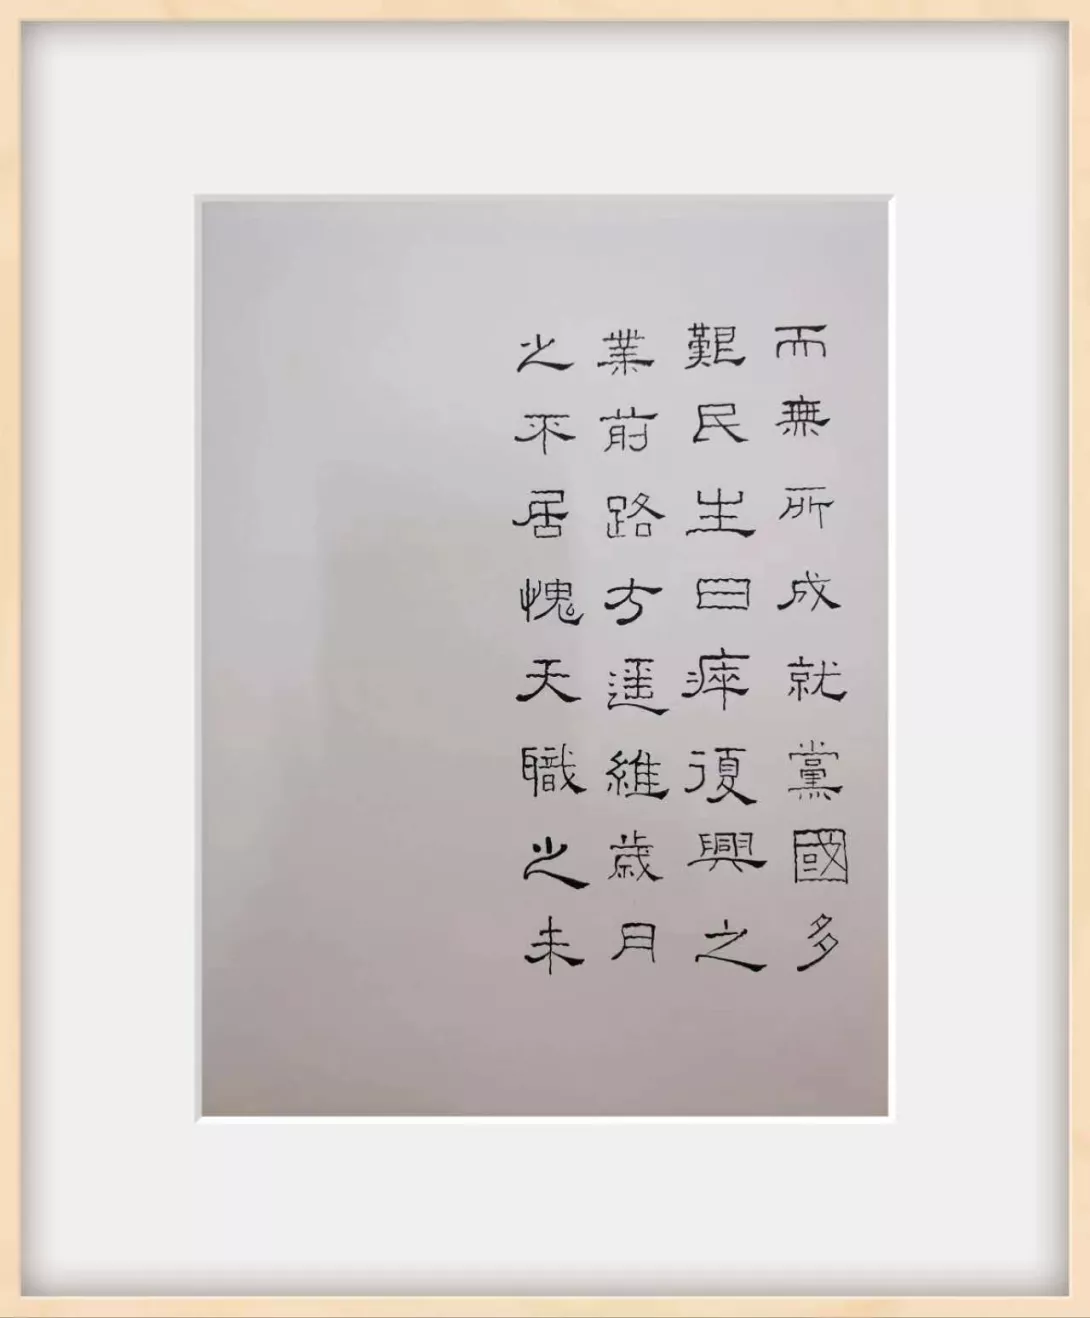 而無所成就黨國多
艱民生曰瘁復興之
業前路方遥維歲月
之不居愧天職之未